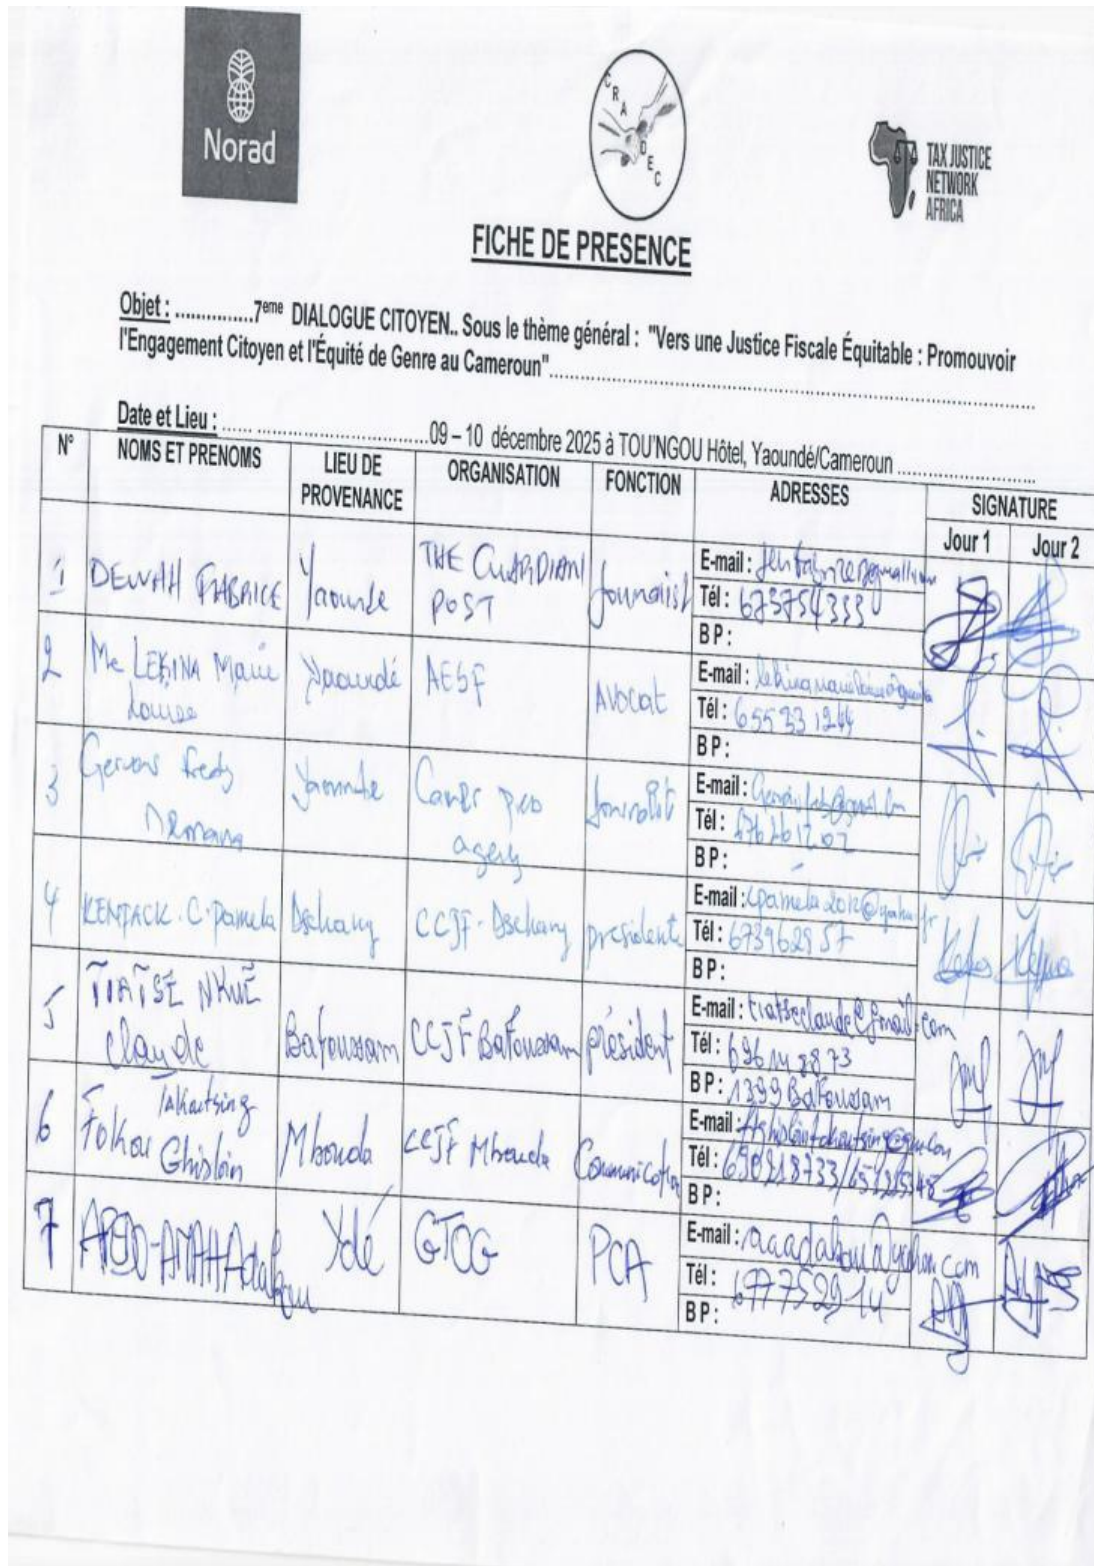 Norad
CRADEC
TAX JUSTICE
NETWORK
AFRICA
FICHE DE PRESENCE
Objet : ...............7eme DIALOGUE CITOYEN.. Sous le thème général : "Vers une Justice Fiscale Équitable : Promouvoir
l'Engagement Citoyen et l'Équité de Genre au Cameroun"
Date et Lieu : ...... ................................09 – 10 décembre 2025 à TOU'NGOU Hôtel, Yaoundé/Cameroun
N° NOMS ET PRENOMS LIEU DE PROVENANCE ORGANISATION FONCTION ADRESSES SIGNATURE
Jour 1 Jour 2
1 DEWAH FABRICE Yaounde THE GUARDIAN POST Journalist E-mail :
Tél : 673754333
BP :
2 Me LEKINA Marie Louise Yaoundé AESF Avocat E-mail :
Tél : 655331244
BP :
3 Fredy Yaounde E-mail :
Tél : 676261202
BP :
4 KENTACK . C. Pamela Dschang CCJF - Dschang présidente E-mail : cpamela2012@yahoo.fr
Tél : 673962957
BP :
5 TIATSE NKUE Claude Bafoussam CCJF Bafoussam président E-mail : tiatseclaude@gmail.com
Tél : 696148873
BP : 1399 Bafoussam
6 Fokou Takoutsing Ghislain Mbouda CCJF Mbouda Communication E-mail :
Tél : 690218733/
BP :
7 Ydé GTOG PCA E-mail :
Tél : 677752914
BP :